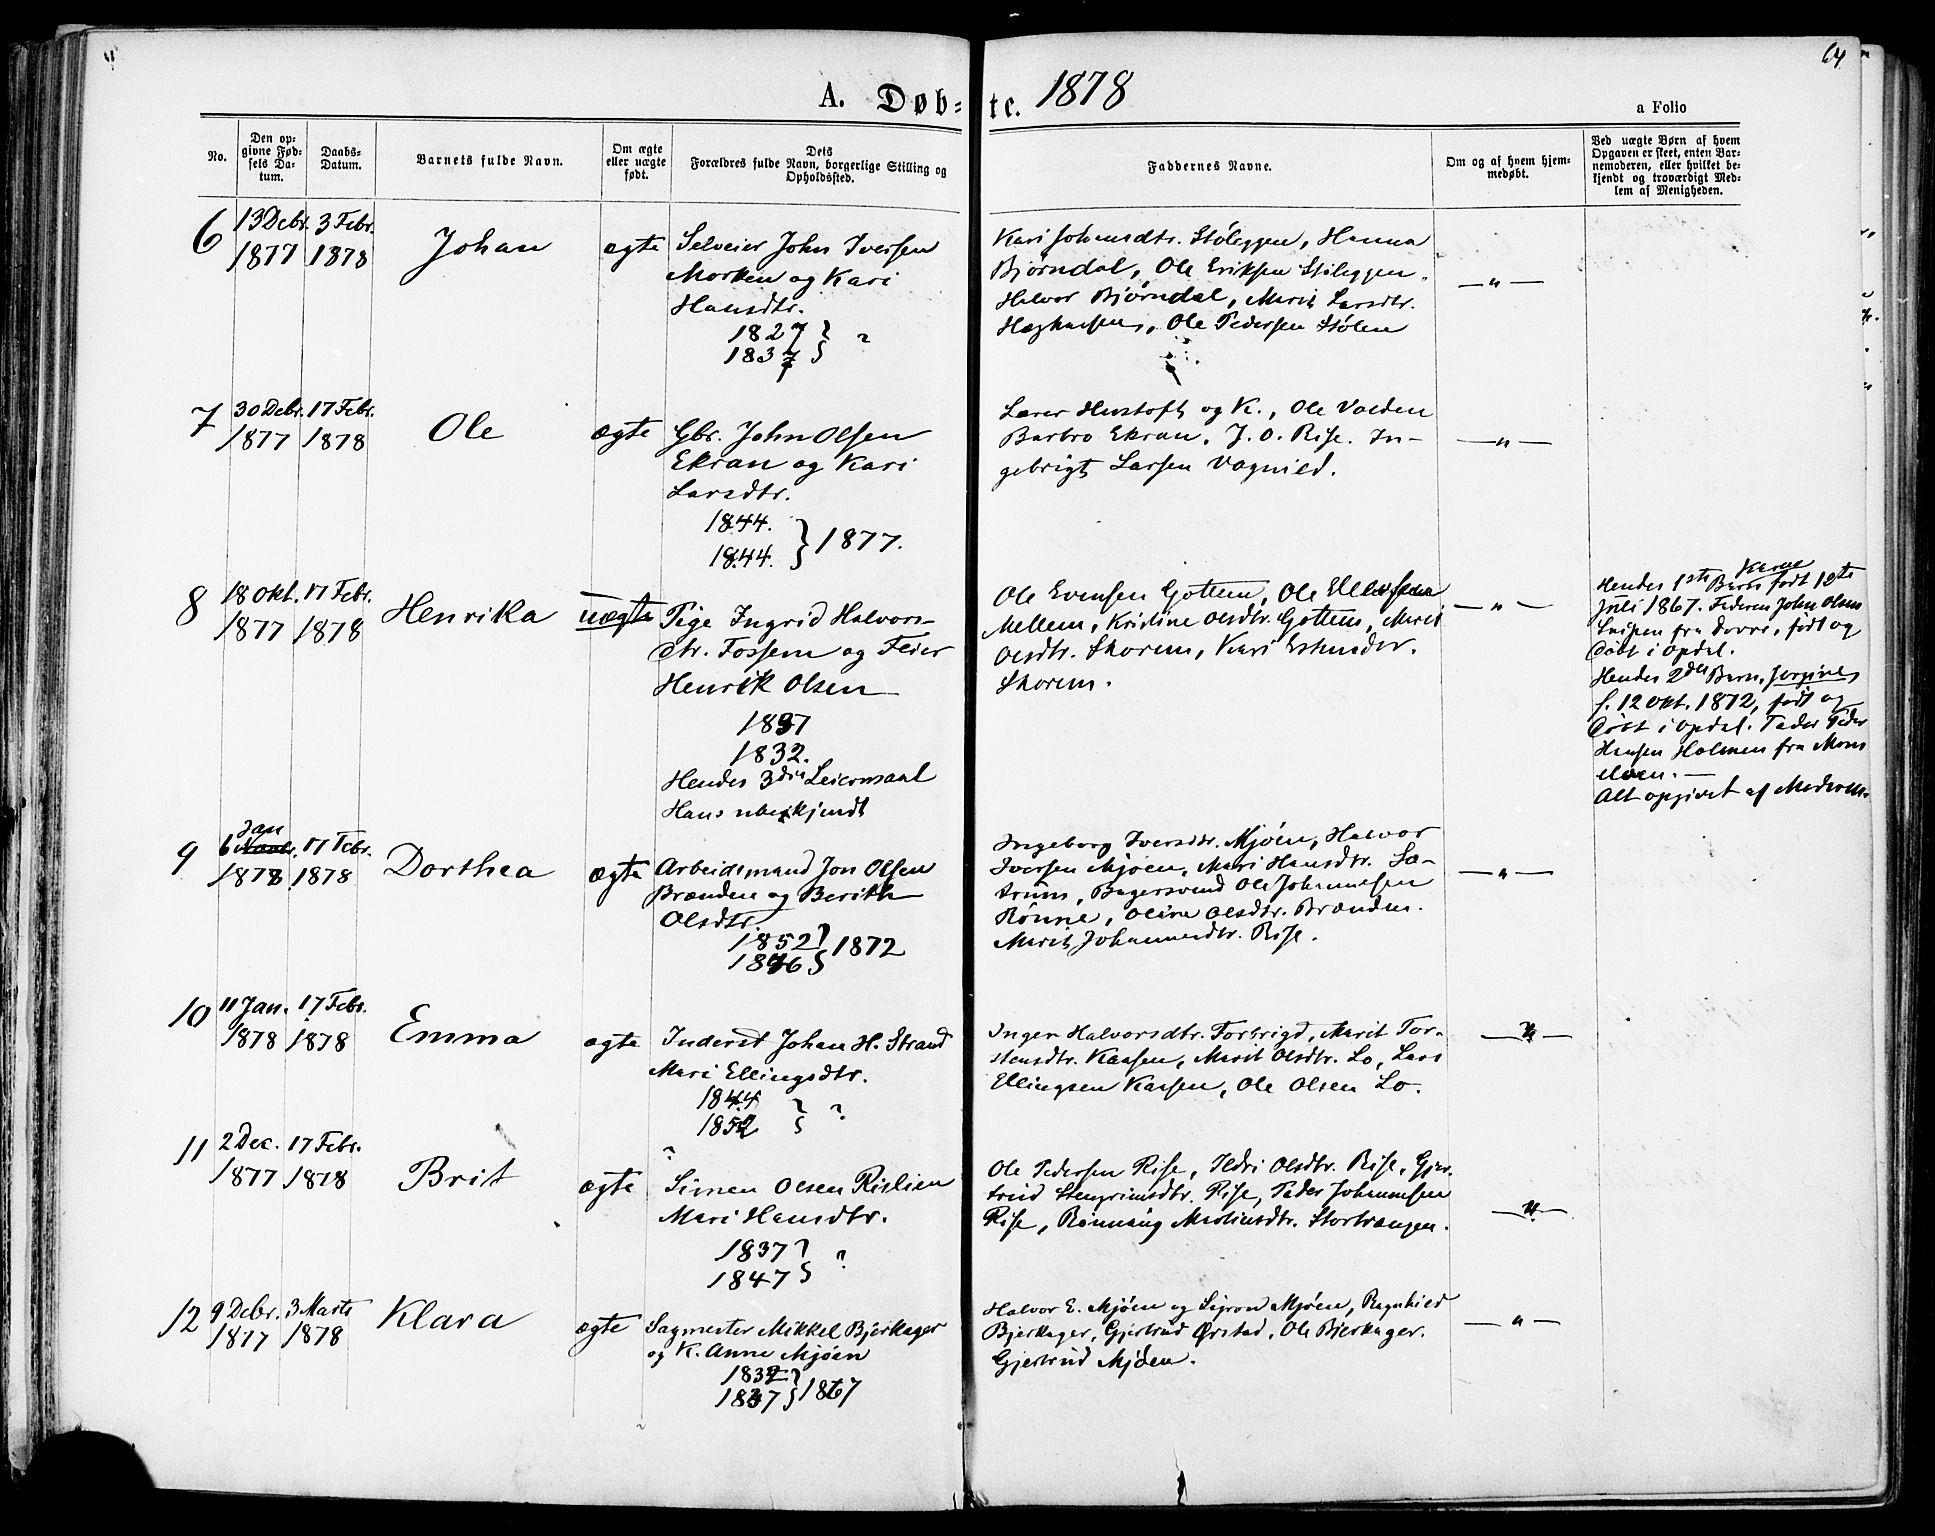 64
A. Døb=te. 1878
a Folio
No.
Den op-
givne Fød-
sels Da-
tum.
Daabs-
Datum.
Barnets fulde Navn.
Om ægte
eller uægte
født.
Dets
Forældres fulde Navn, borgerlige Stilling og
Opholdssted.
Faddernes Navne.
Om og af hvem hjem-
medøbt.
Ved uægte Børn af hvem
Opgaven er skeet, enten Bar-
nemoderen, eller hvilket be-
kjendt og troværdigt Med-
lem af Menigheden.
6
13 Debr.
1877
3 Febr.
1878
Johan
ægte
Selveier John Iversen
Morken og Kari
Hansdtr.
1827
1837 } "
Kari Johansdtr. Stöleggen, Hanna
Bjørndal, Ole Eriksen Stöleggen,
Halvor Bjørndal, Marit Larsdtr.
Ole Pedersen Stölen
— " —
7
30 Debr.
1877
17 Febr.
1878
Ole
ægte
Gbr. John Olsen
Ekran og Kari
Larsdtr.
1844.
1844. } 1877.
Lærer Hustoft og K., Ole Volden
Barbro Ekran, J. O. Rise. In-
gebrigt Larsen Vognild.
— " —
8
18 Okt.
1877
17 Febr.
1878
Henrika
uægte
Pige Ingrid Halvors-
dtr. Fossem og Feier
Henrik Olsen
1837
1832.
Hendes 3die Leiermaal
Hans ubekjendt
Ole Evensen Gottem, Ole Ellevsen
Mellem, Kristine Olsdtr. Gottem, Marit
Olsdtr. Skorem, Kari
Skorem.
— " —
Hendes 1ste Barn født 12te
Juli 1867. Faderen John Olsen
Snipen fra Dovre, født og
döbt i Opdal.
Hendes 2det Barn, Jorgine,
f. 12 Okt. 1872, født og
döbt i Opdal. Fader Peder
Hansen Holmen fra
—
Alt opgivet af Moderen.
9
Jan
6
1878
17 Febr.
1878
Dorthea
ægte
Arbeidsmand Jon Olsen
Brænden og Berith
Olsdtr.
1852
1846 } 1872
Ingeborg Iversdtr. Mjöen, Halvor
Iversen Mjöen, Mari Hansdtr. Sæ-
trum, Bagersvend Ole Johannesen
Rönne, Oline Olsdtr. Brænden.
Marit Johannesdtr. Rise.
— " —
10
11 Jan.
1878
17 Febr.
1878
Emma
ægte
Inderst Johan H. Strand
Mari Ellingsdtr.
1844
1852 } "
Inger Halvorsdtr. Fortrigd, Marit Tor-
stensdtr. Kaasen, Marit Olsdtr. Lo, Lars
Ellingsen Kaasen, Ole Olsen Lo.
— " —
11
2 Dec.
1877
17 Febr.
1878
Brit
ægte
"
Simen Olsen Rislien
Mari Hansdtr.
1837
1847 } "
Ole Pedersen Rise, Ildri Olsdtr. Rise, Gjer-
trud Stengrimsdtr. Rise, Peder Johannesen
Rise, Rönnaug Martinsdtr. Stortrængen.
— " —
12
9 Debr.
1877
3 Marts
1878
Klara
ægte
Sagmester Mikkel Bjerkager
og K. Anne Mjöen
1837 } 1867
Halvor E. Mjöen og Sigron Mjöen, Ragnhild
Bjerkager, Gjertrud Ørstad, Ole Bjerkager.
Gjertrud Mjöen.
— " —